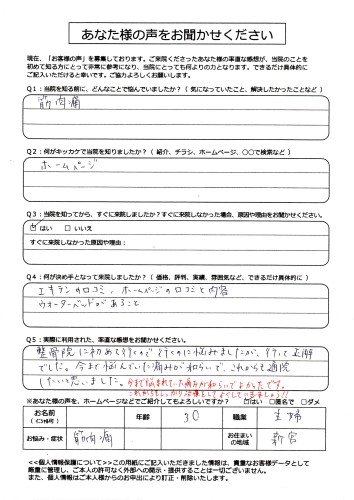 あなた様の声をお聞かせください
現在、「お客様の声」を募集しております。ご来院くださったあなた様の率直な感想が、当院のことを
初めて知る方にとって非常に参考になり、当院にとっても何よりの力となります。できるだけ具体的に
ご記入いただけると幸いです。ご協力よろしくお願いします。
Q1：当院を知る前に、どんなことで悩んでいましたか？（気になっていたこと、解決したかったことなど）
筋肉痛
Q2：何がキッカケで当院を知りましたか？（紹介、チラシ、ホームページ、○○で検索など）
ホームページ
Q3：当院を知ってから、すぐに来院しましたか？すぐに来院しなかった場合、原因や理由をお聞かせください。
☑はい　□いいえ
すぐに来院しなかった原因や理由：
Q4：何が決め手となって来院しましたか？（価格、評判、実績、雰囲気など、できるだけ具体的に）
エキテンの口コミ、ホームページの口コミと内容
ウォーターベッドがあること
Q5：実際に利用された、率直な感想をお聞かせください。
整骨院に初めて行くので行くのに悩みましたが、行って正解
でした。今まで悩んでいた痛みが和らいで、これからも通院
したいと思いました。今まで悩まれていた痛みが和らいでよかったです。
これからもしっかり治療をしていきましょう!!
※あなた様の声を、ホームページなどでご紹介してもよろしいですか？　☑はい　□匿名で　□ダメ
お名前
（イニシャル可）
年齢
30
職業
主婦
お悩み・症状
筋肉痛
お住まい
の地域
新宮
<<個人情報保護について>>この用紙にご記入いただきました情報は、貴重なお客様データとして
厳重に管理し、ご本人の許可なく外部への開示・提供することは一切ございません。
また、個人情報はご本人様からのお申出により訂正・削除いたします。